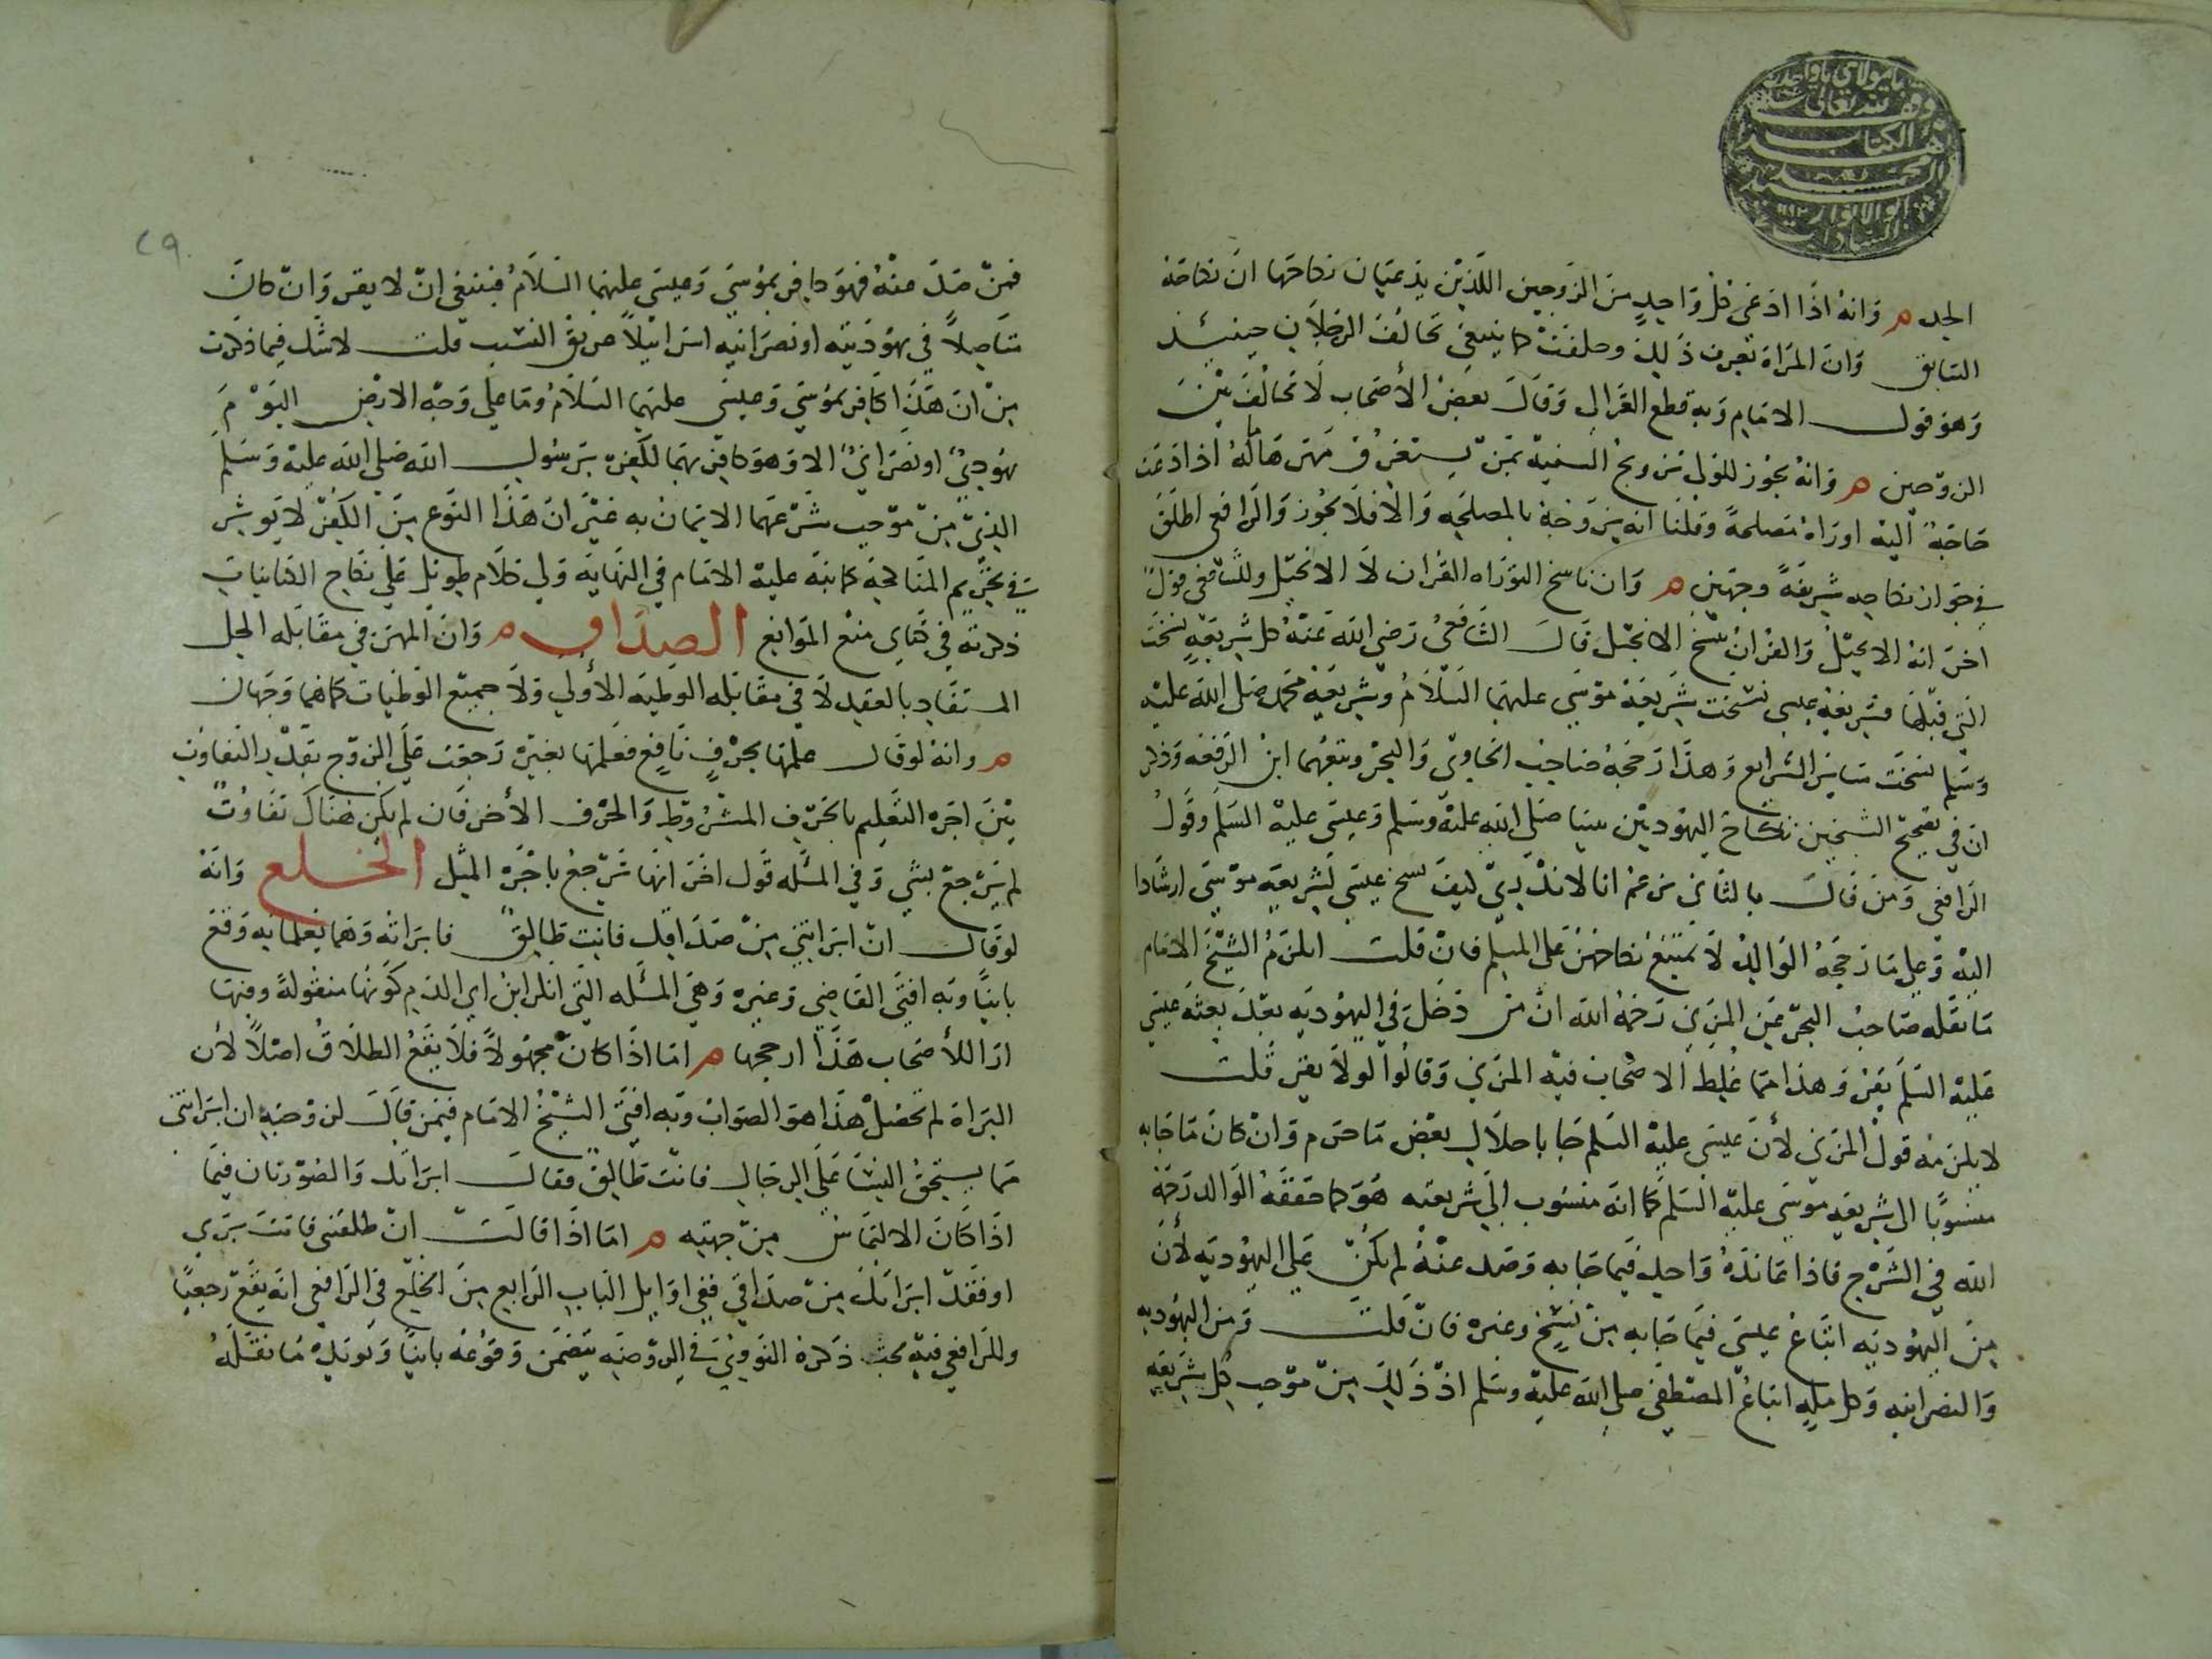 يا مولاي يا واحد
وقف لله تعالى
هذا الكتاب
السيد محمد
ابو الانوار
السادات
الجد م وانه اذا ادعى كل واحد من الزوجين اللذين يدعيان نكاحها ان نكاحه
السابق وان المراة تعرف ذلك وحلفت كما ينبغى تحالف الرجلان حينئذ
وهو قول الامام وبه قطع الغزالى وقال بعض الأصحاب لا تحالف بين
الزوجين م وانه يجوز للولى تزويج السفيه بمن يستغرق مهرها ماله اذا دعت
حاجة اليه او راه مصلحة وقلنا انه يزوجه بالمصلحه والا فلا يجوز والرافعى اطلق
فى جواز نكاحه شريفة وجهين م وان ناسخ التوراه القران لا الانجيل وللشافعى قول
اخر انه الانجيل والقران نسخ الانجيل قال الشافعى رضى الله عنه كل شريعة نسخت
التى قبلها فشريعة عيسى نسخت شريعة موسى عليهما السلام وشريعة محمد صلى الله عليه
وسلم نسخت سائر الشرايع وهذا رجحه صاحب الحاوى والبحر وتبعهما ابن الرفعه وذكر
ان فى تصحيح الشيخين نكاح اليهود بين نبينا صلى الله عليه وسلم وعيسى عليه السلم وقول
الرافعى ومن قال بالثانى زعم انا لا ندرى كيف نسخ عيسى لشريعة موسى ارشادا
اليه وعلى ما رجحه الوالد لا يمتنع نكاحهن على المسلم فان قلت ايلزم الشيخ الامام
ما نقله صاحب البحر عن المزنى رحمه الله ان من دخل فى اليهوديه بعد بعثه عيسى
عليه السلم يقر وهذا مما غلط الاصحاب فيه المزنى وقالوا لو لا يقر قلت
لا يلزمه قول المزنى لأن عيسى عليه السلم جا باحلال بعض ما حرم وان كان ما جا به
منسوبا الى شريعه موسى عليه السلم كما انه منسوب الى شريعته هو كما حققه الوالد رحمه
الله فى الشرح فاذا عانده واحد فيما جا به وصد عنه لم يكن على اليهوديه لأن
من اليهوديه اتباع عيسى فيما جا به من نسخ وغيره فان قلت ومن اليهوديه
والنصرانيه وكل مله اتباع المصطفى صلى الله عليه وسلم اذ ذلك من موجب كل شريعه
٢٩
فمن صد عنه فهو كافر بموسى وعيسى عليهما السلام فينبغى ان لا يقر وان كان
متاصلا فى يهوديته او نصرانيه اسرائيلا عريق النسب قلت لا شك فيما ذكرت
من ان هذا كافر بموسى وعيسى عليهما السلام وما على وجه الارض اليوم
يهودى او نصرانى الا وهو كافر بهما لكفره برسول الله صلى الله عليه وسلم
الذى من موجب شرعهما الايمان به غير ان هذا النوع من الكفر لا يوثر
فى تحريم المناكحة كما نبه عليه الامام فى النهايه ولى كلام طويل على نكاح الكتابيات
ذكرته فى كتابى منع الموانع الصداق م وان المهر فى مقابله الحل
المستفاد بالعقد لا فى مقابله الوطيه الأولى ولا جميع الوطيات كما هما وجهان
م وانه لو قال علمها بحرف نافع فعلمها بغيره رجعت على الزوج بقدر التفاوت
بين اجره التعليم بالحرف المشروط والحرف الأخر فان لم يكن هناك تفاوت
لم يرجع بشى وفى المسله قول اخر انها ترجع باجره المثل الخلع وانه
لو قال ان ابراتنى من صداقك فانت طالق فابراته وهما يعلمانه وقع
باينا وبه افتى القاضى وغيره وهى المسله التى انكر ابن ابى الدم كونها منقولة وفيها
ارا للأصحاب هذا ارجحها م اما اذا كان مجهولا فلا يقع الطلاق اصلا لأن
البراة لم تحصل هذا هو الصواب وبه افتى الشيخ الامام فيمن قال لزوجته ان ابراتنى
مما يستحق النسا على الرجال فانت طالق فقالت ابراتك والصورتان فيما
اذا كان الالتماس من جهته م اما اذا قالت ان طلقتنى فانت برى
او فقد ابراتك من صداقى ففى اوايل الباب الرابع من الخلع فى الرافعى انه يقع رجعيا
وللرافعى فيه بحث ذكره النووى فى الروضه يتضمن وقوعه باينا ويويده ما نقله